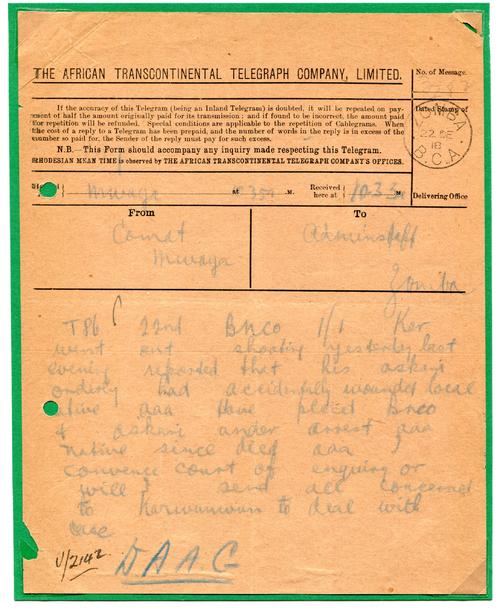 THE AFRICAN TRANSCONTINENTAL TELEGRAPH COMPANY, LIMITED.
No. of Message.
If the accuracy of this Telegram (being an Inland Telegram) is doubted, it will be repeated on pay-
ment of half the amount originally paid for its transmission; and if found to be incorrect, the amount paid
for repetition will be refunded. Special conditions are applicable to the repetition of Cablegrams. When
the cost of a reply to a Telegram has been prepaid, and the number of words in the reply is in excess of the
number so paid for, the Sender of the reply must pay for such excess.
N.B.—This Form should accompany any inquiry made respecting this Telegram.
RHODESIAN MEAN TIME is observed by THE AFRICAN TRANSCONTINENTAL TELEGRAPH COMPANY'S OFFICES.
Dated Stamp of
ZOMBA
22 SE
18
B.C.A.
Delivering Office
Mwaya
At
M.
Received
here at
M
From
To
Comdt
Mwaya
Adminstaff
Zomba
T86 22nd Bnco 1/1 Kar
went out shooting yesterday last
evening reported that his askari
orderly had accidentally wounded local
native aaa Have placed Bnco
& askari under arrest aaa
native since died aaa
convence court of enquiry or
will I send all concerned
to to deal with
case
V/2142
D.A.A.G